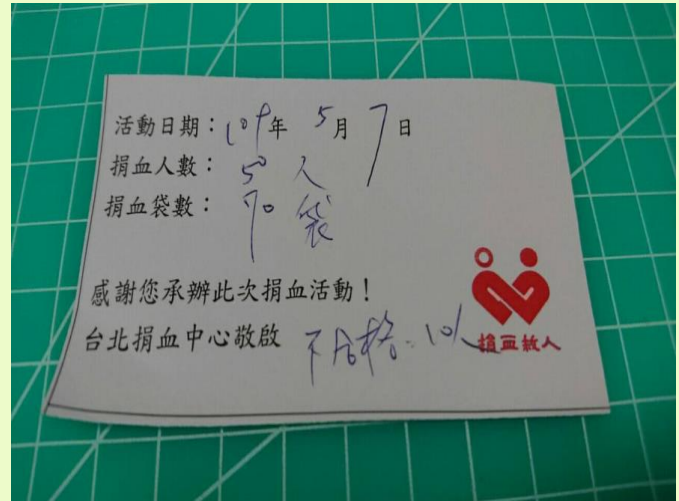 活動日期：109年 5月 7日
捐血人數： 50 人
捐血袋數： 70 袋
感謝您承辦此次捐血活動！
台北捐血中心敬啟 不合格: 10人
捐血救人